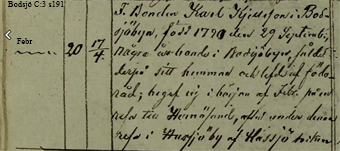 Bodsjö C:3 s191
Febr
20 17/4
F. Bonden Karl Kjellsson i Bod-
sjöbyn, född 1790 den 29 Septemb;
några år bonde i Bodsjöbyn, sålde
derpå sitt hemman och lefde af födo-
råd; begaf sig i början af Febr. på en
resa till Hernösand, under denna
resa i Hussjöby af Hässjö socken